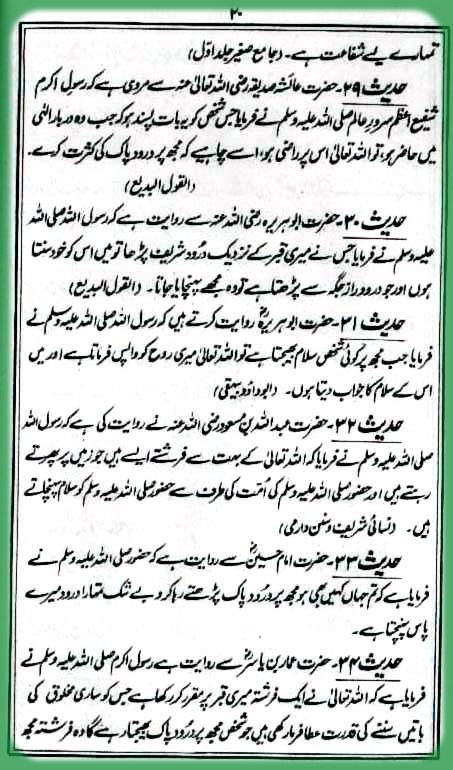 ۲۰
تمہارے لیے شفاعت ہے۔ (جامع صغیر جلد اوّل)
حدیث ۲۹۔ حضرت عائشہ صدیقہ رضی اللہ تعالیٰ عنہ سے مروی ہے کہ رسول اکرم
شفیع اعظم سرورِ عالم صلی اللہ علیہ وسلم نے فرمایا جس شخص کو یہ بات پسند ہو کہ جب وہ دربار الٰہی
میں حاضر ہو، تو اللہ تعالیٰ اس پر راضی ہو، اسے چاہیے کہ مجھ پر درود پاک کی کثرت کرے۔
(القول البدیع)
حدیث ۳۰۔ حضرت ابو ہریرہ رضی اللہ عنہ سے روایت ہے کہ رسول اللہ صلی اللہ
علیہ وسلم نے فرمایا جس نے میری قبر کے نزدیک درود شریف پڑھا تو میں اس کو خود سنتا
ہوں اور جو دور دراز جگہ سے پڑھتا ہے تو وہ مجھے پہنچایا جاتا۔ (القول البدیع)
حدیث ۳۱۔ حضرت ابو ہریرہؓ روایت کرتے ہیں کہ رسول اللہ صلی اللہ علیہ وسلم نے
فرمایا جب مجھ پر کوئی شخص سلام بھیجتا ہے تو اللہ تعالیٰ میری روح کو واپس فرماتا ہے اور میں
اس کے سلام کا جواب دیتا ہوں۔ (ابوداؤد بیہقی)
حدیث ۳۲۔ حضرت عبداللہ بن مسعود رضی اللہ عنہ نے روایت کی ہے کہ رسول اللہ
صلی اللہ علیہ وسلم نے فرمایا کہ اللہ تعالیٰ کے بہت سے فرشتے ایسے ہیں جو زمیں پر پھرتے
رہتے ہیں اور حضور صلی اللہ علیہ وسلم کی امت کی طرف سے حضور صلی اللہ علیہ وسلم کو سلام پہنچاتے
ہیں۔ (نسائی شریف و سنن دارمی)
حدیث ۳۳۔ حضرت امام حسینؓ سے روایت ہے کہ حضور صلی اللہ علیہ وسلم نے
فرمایا ہے کہ تم جہاں کہیں بھی ہو مجھ پر درود پاک پڑھتے رہا کرو بے شک تمہارا درود میرے
پاس پہنچتا ہے۔
حدیث ۳۴۔ حضرت عمار بن یاسرؓ سے روایت ہے رسول اکرم صلی اللہ علیہ وسلم نے
فرمایا ہے کہ اللہ تعالیٰ نے ایک فرشتہ میری قبر پر مقرر کر رکھا ہے جس کو ساری مخلوق کی
باتیں سننے کی قدرت عطا فرما رکھی ہیں جو شخص مجھ پر درود پاک بھیجتا رہے گا وہ فرشتہ مجھ